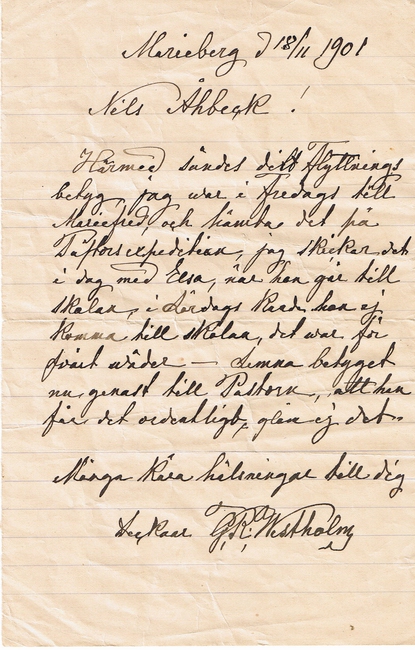 Marieberg d 18/11 1901
Nils Åhbeck!
Härmed sändes ditt Flyttnings
betyg, jag war i Fredags till
Mariefred och hämta det på
Pastorsexpedition, jag skickar det
i dag med Elsa, när hon går till
skolan, i Lördags kunde hon ej
komma till skolan, det war för
svårt wäder — Lemna betyget
nu genast till Pastorn, att han
får det ordentligt, glöm ej det.
Många kära hälsningar till dig
tecknar G. R. Westholm